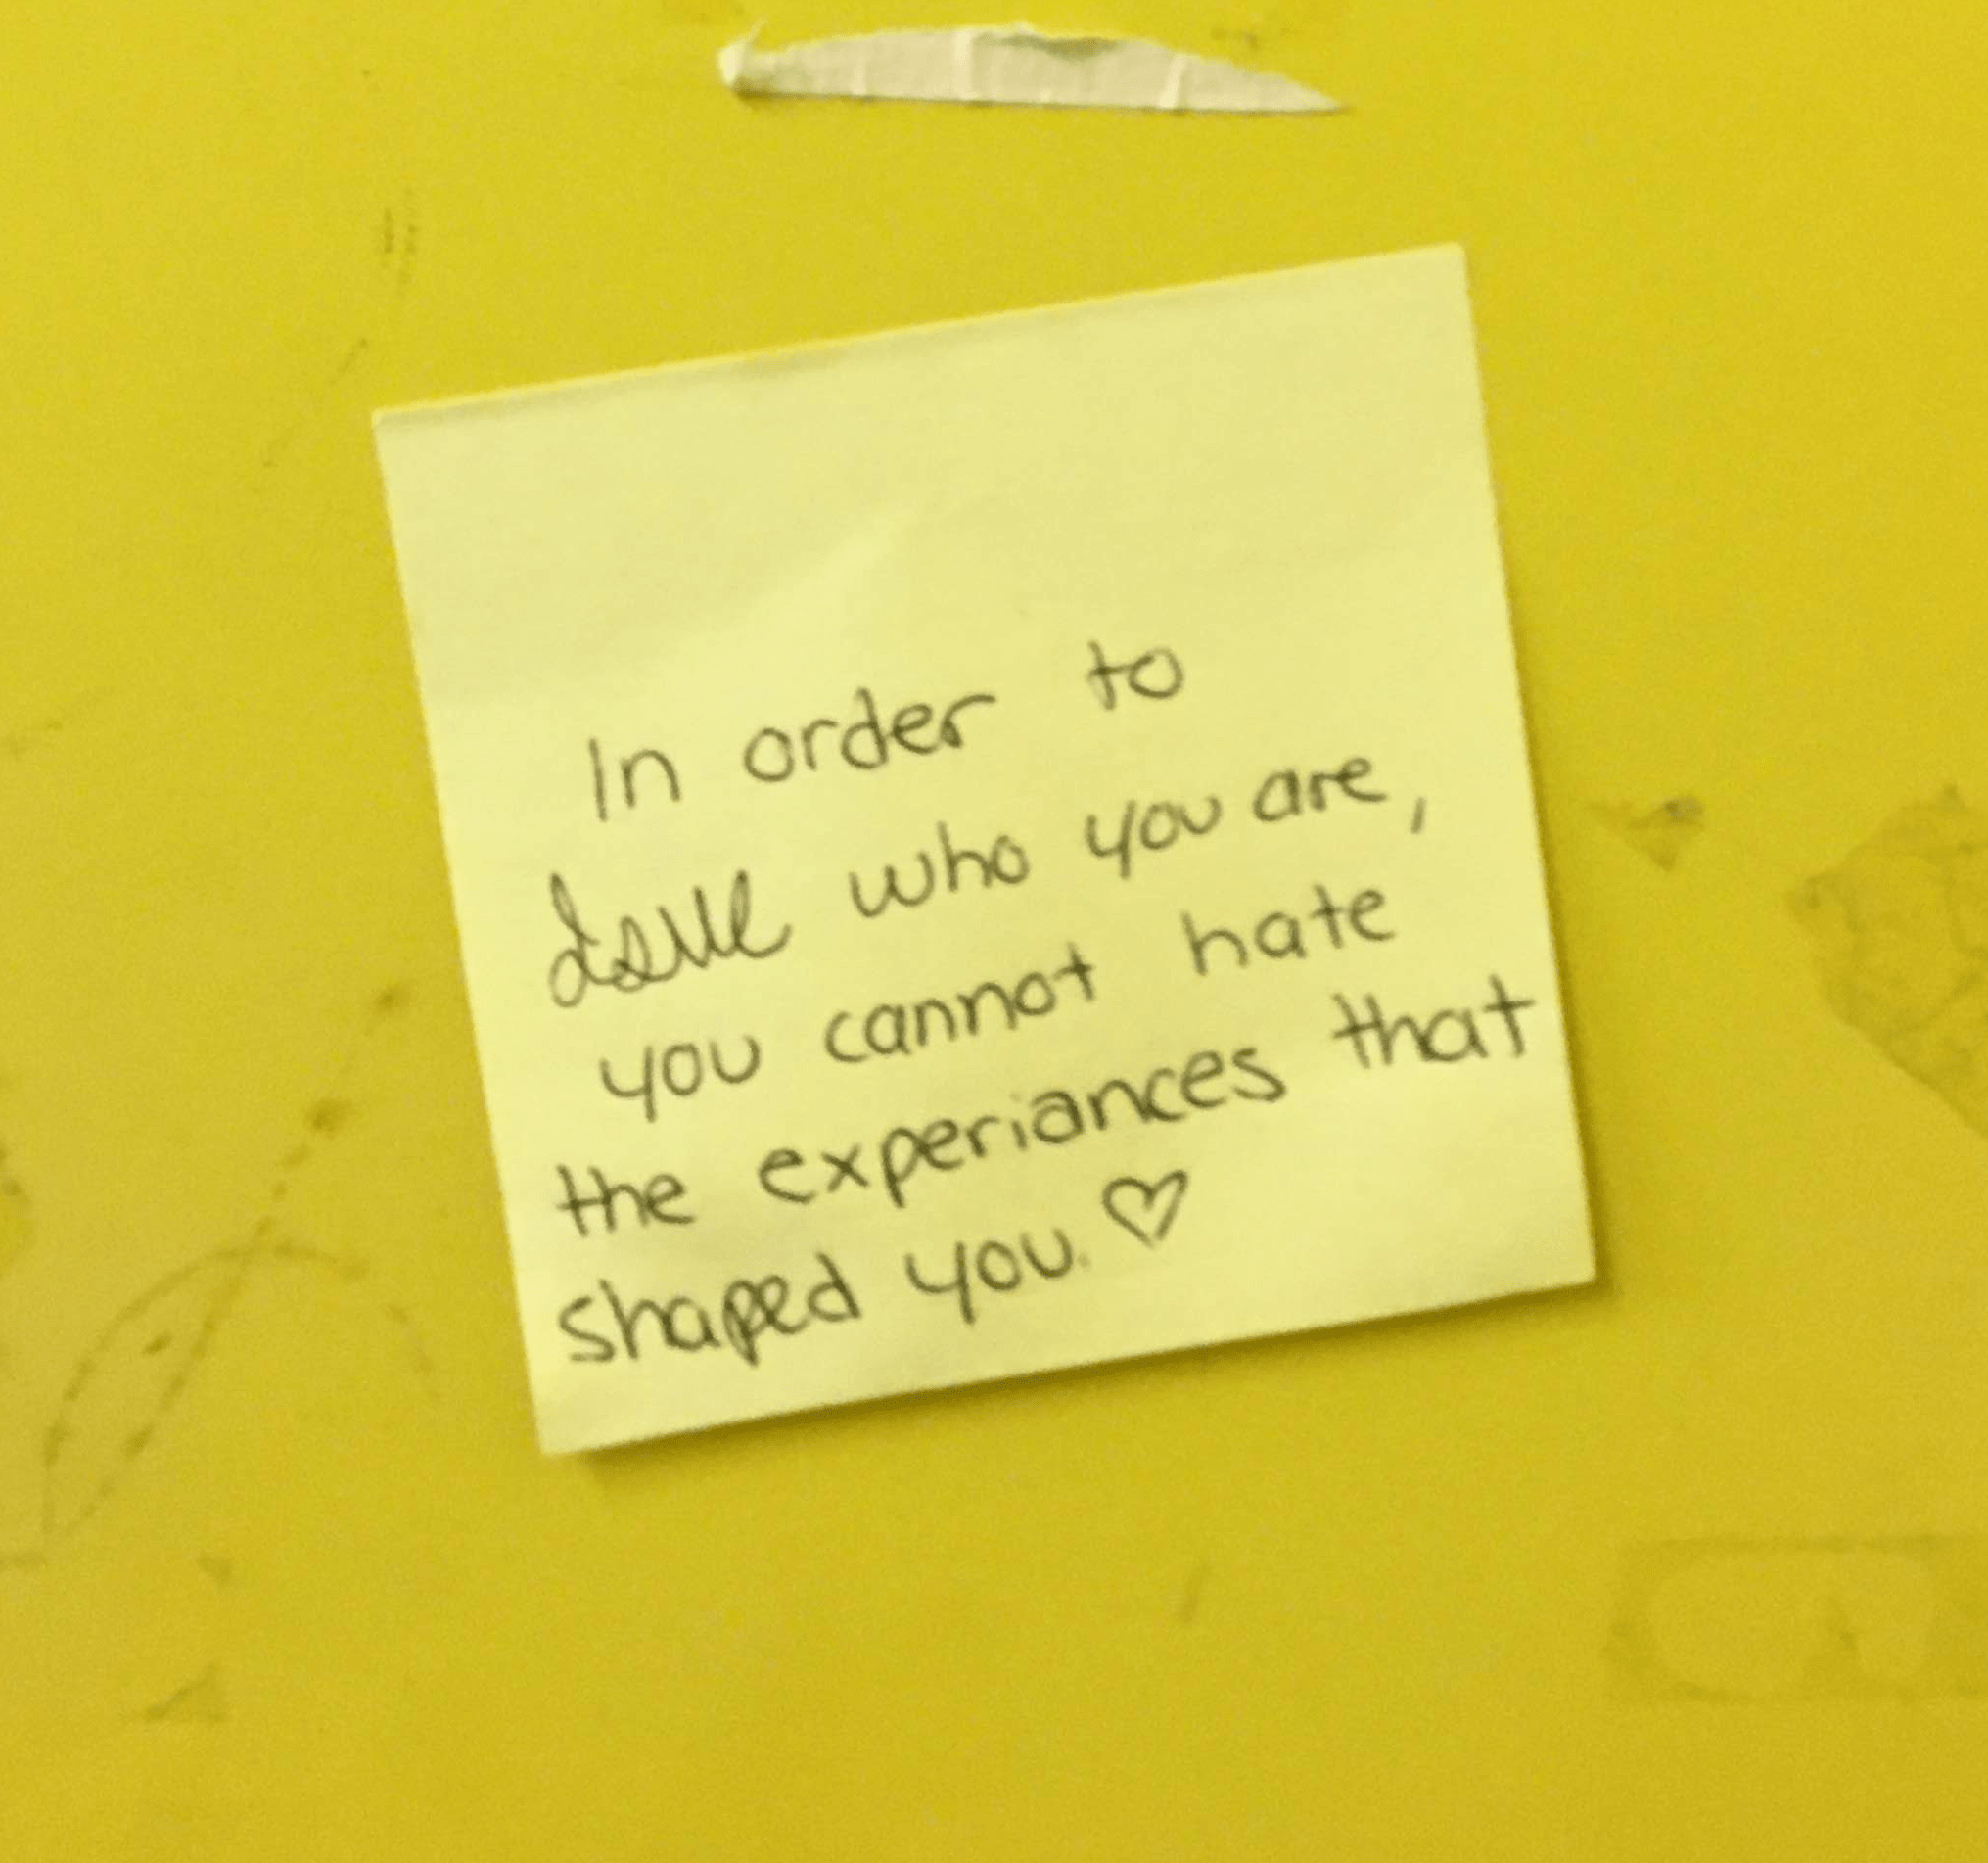 In order to
love who you are,
you cannot hate
the experiances that
shaped you. ♡